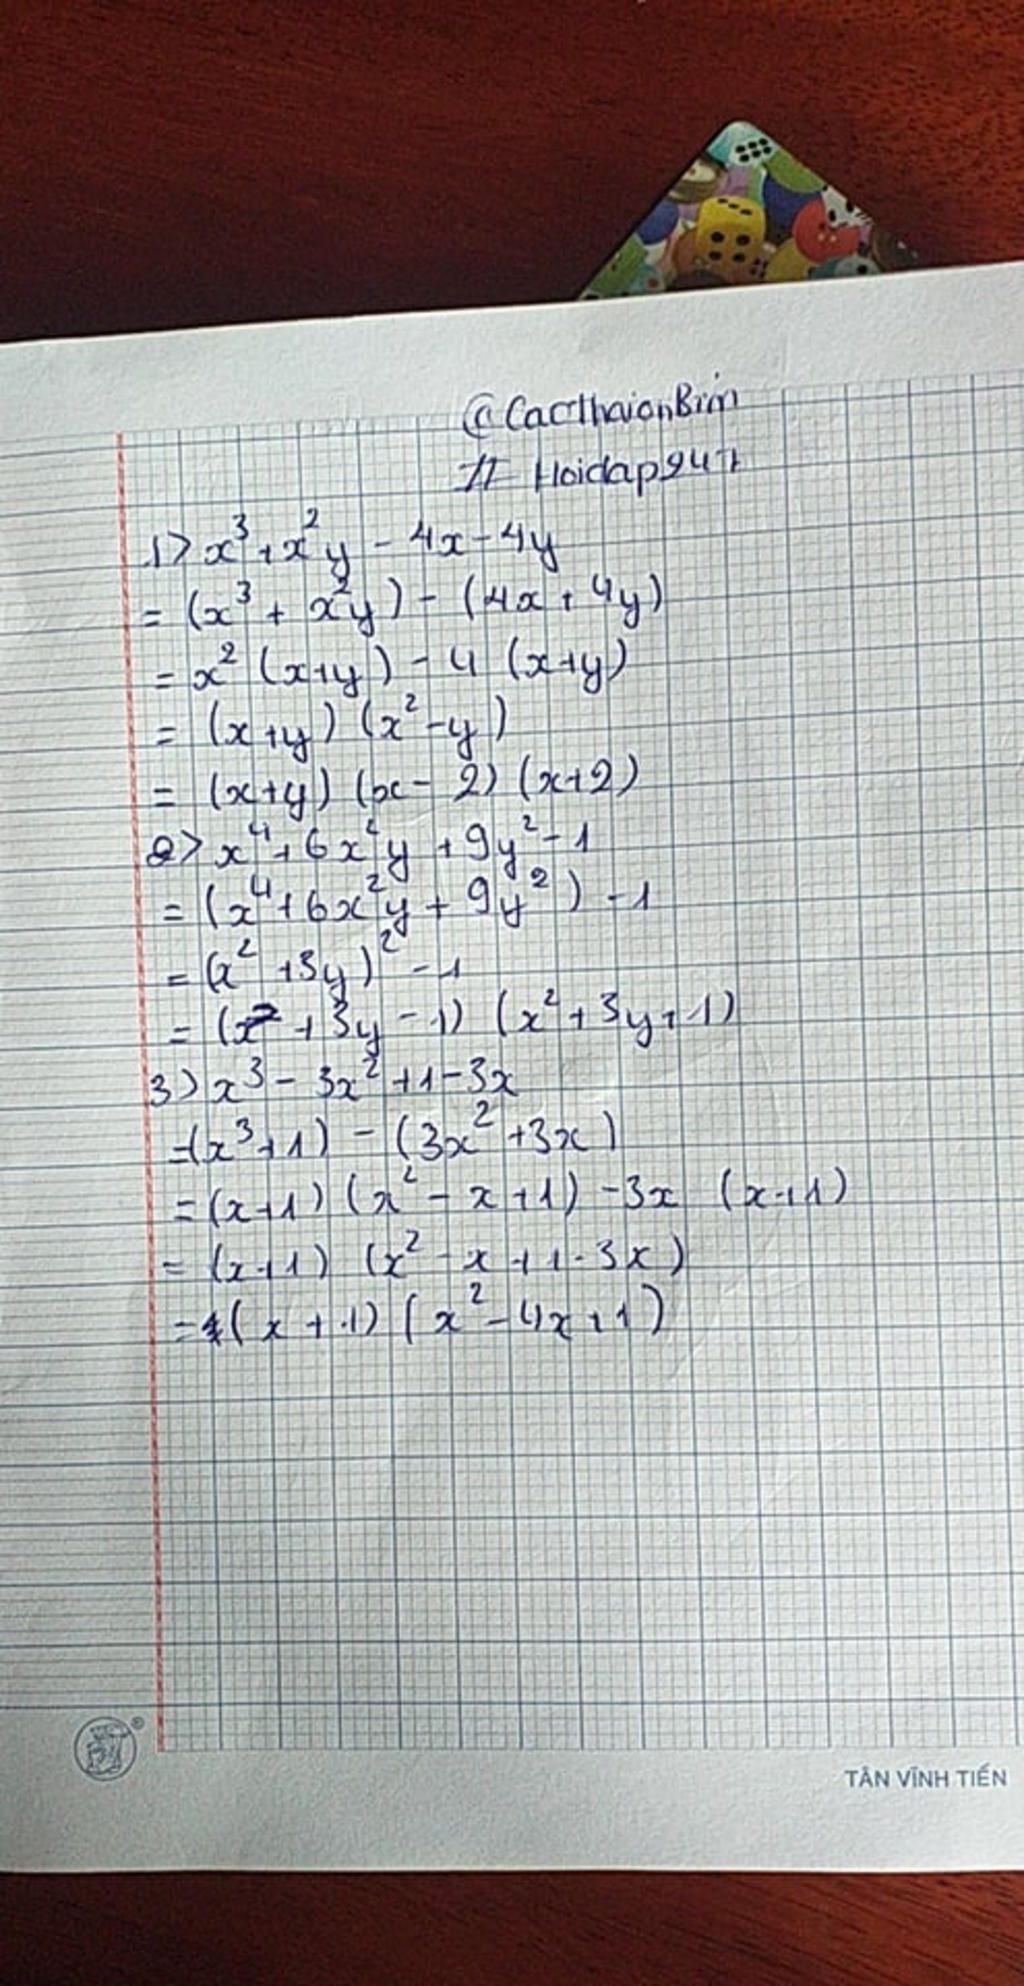 @CacThaionBim
# Hoidap247
1> x³ + x²y - 4x - 4y
= (x³ + x²y) - (4x + 4y)
= x² (x+y) - 4 (x+y)
= (x+y) (x² - y)
= (x+y) (x - 2) (x+2)
2> x⁴ + 6x²y + 9y² - 1
= (x⁴ + 6x²y + 9y²) - 1
= (x² + 3y)² - 1
= (x² + 3y - 1) (x² + 3y + 1)
3) x³ - 3x² + 1 - 3x
= (x³ + 1) - (3x² + 3x)
= (x+1) (x² - x + 1) - 3x (x+1)
= (x+1) (x² - x + 1 - 3x)
= (x + 1) (x² - 4x + 1)
TÂN VĨNH TIẾN